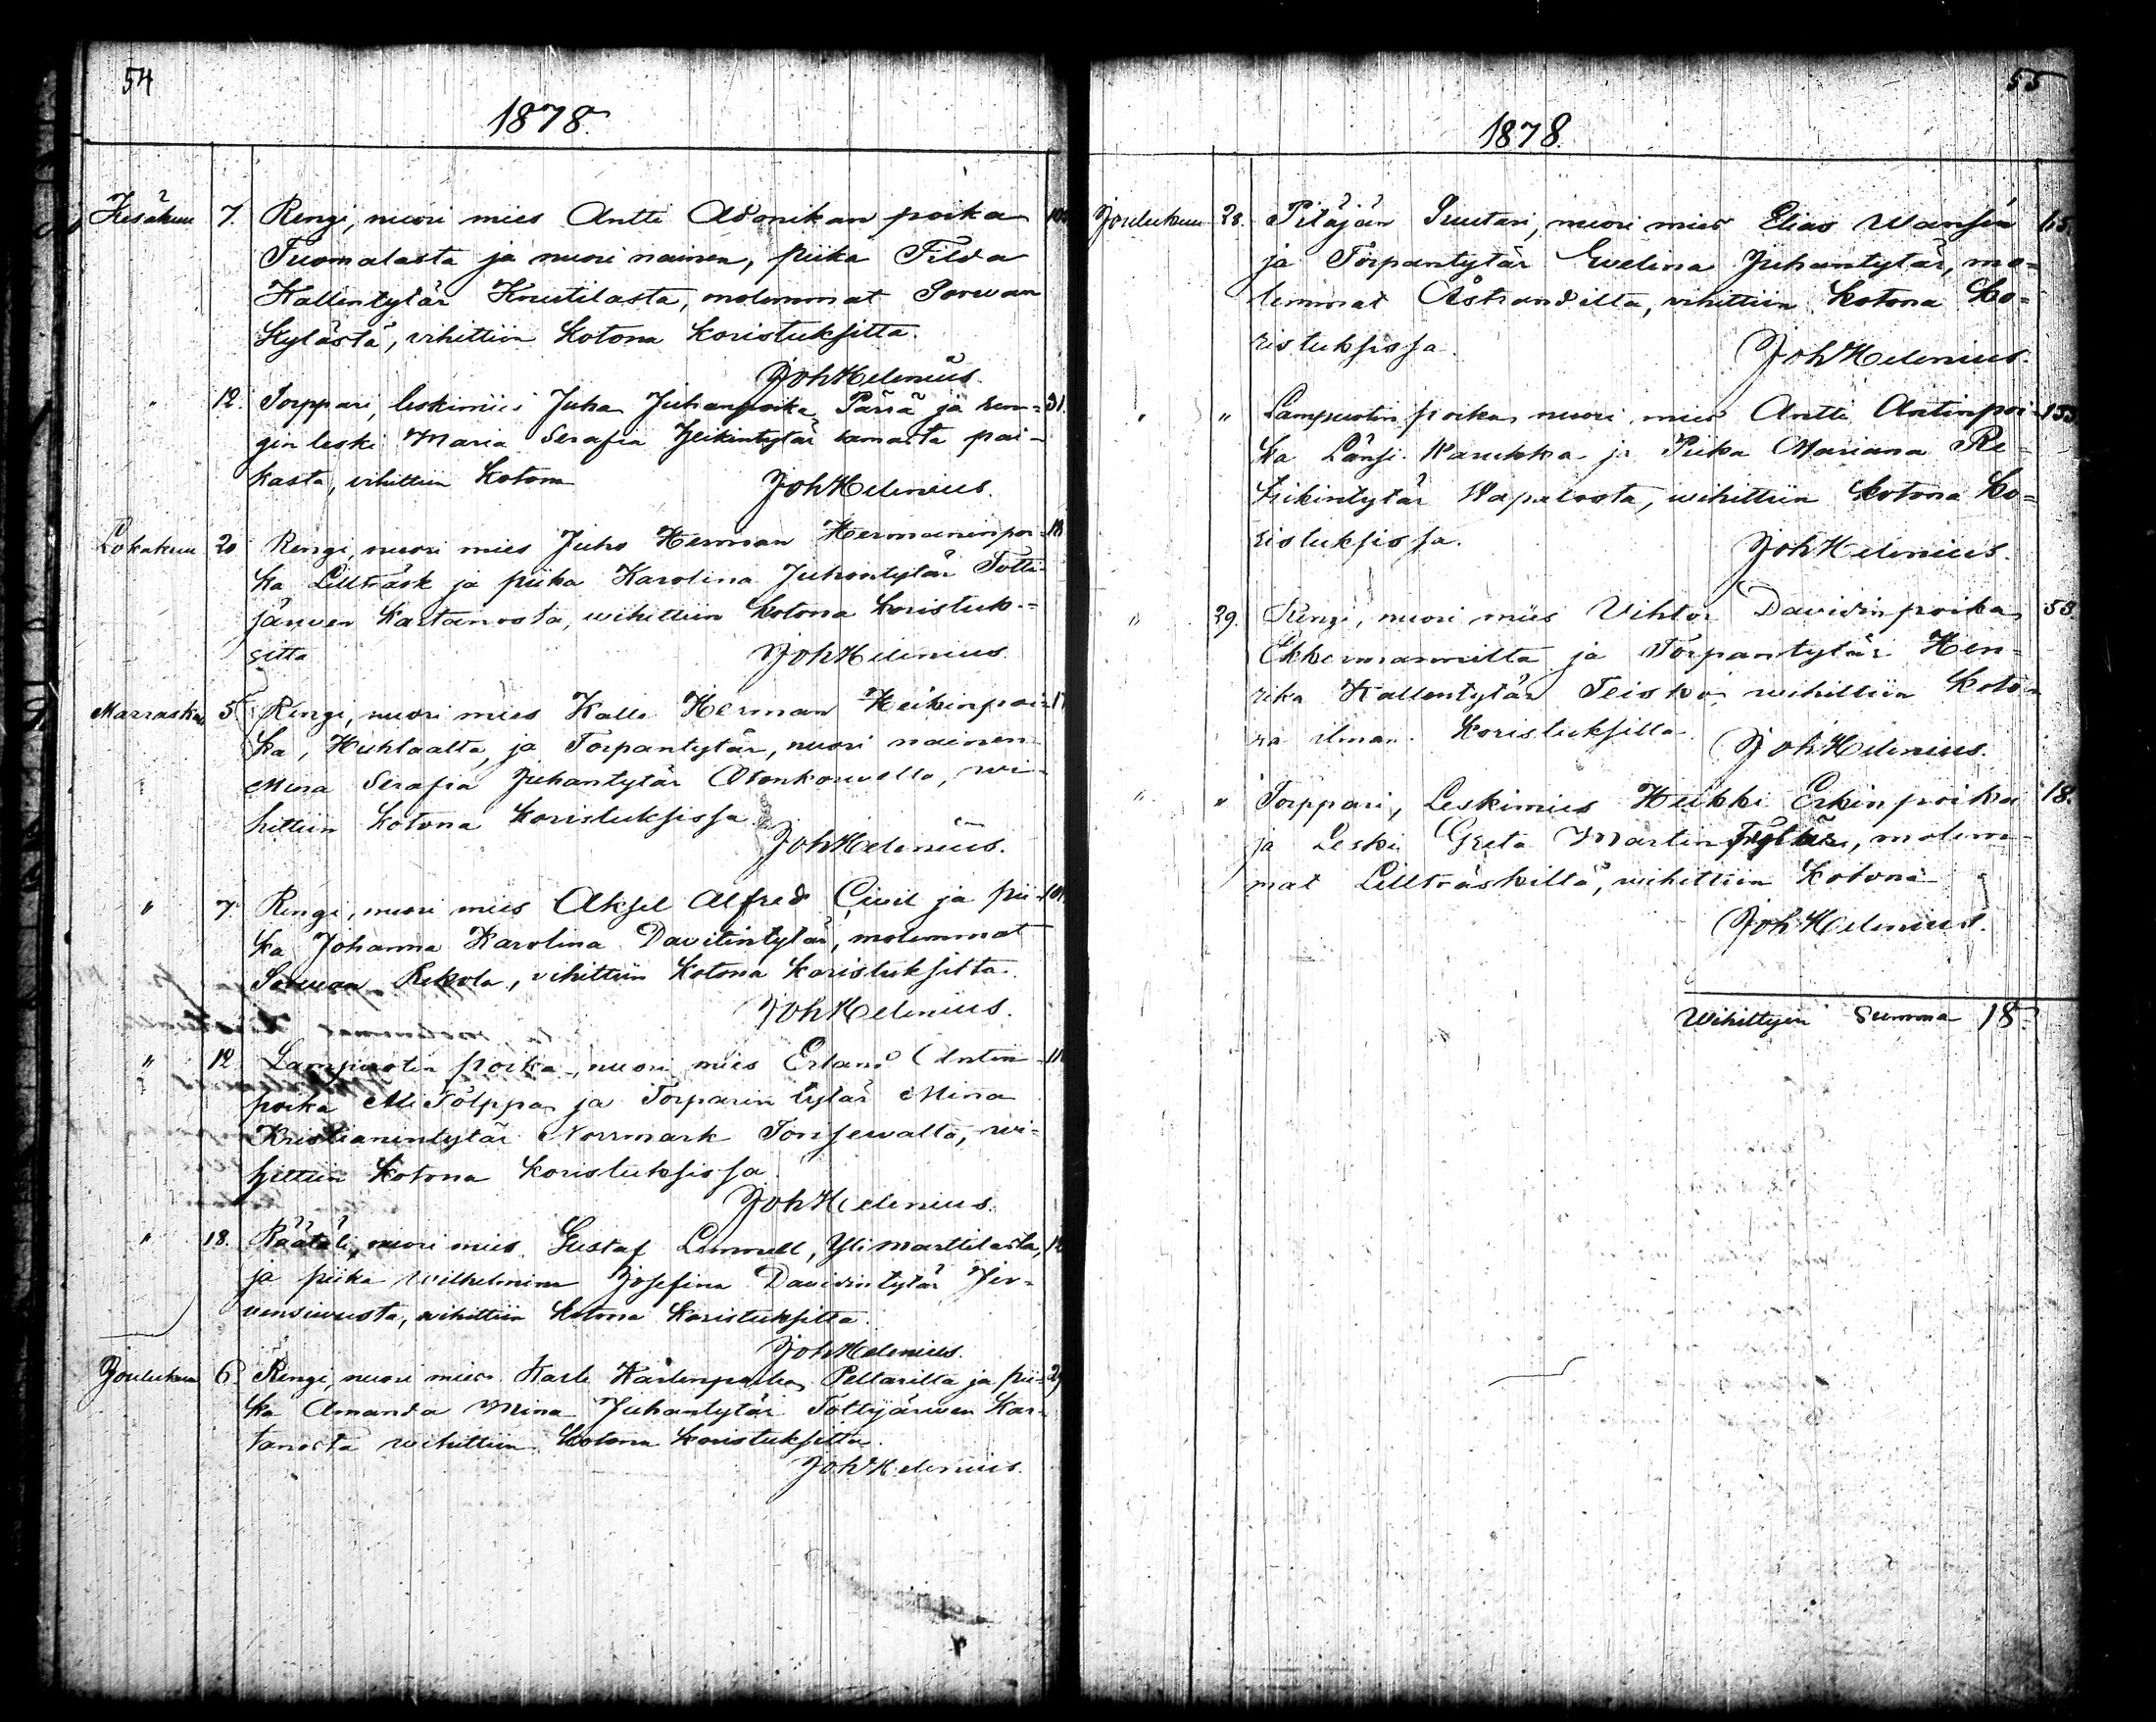 54
1878.
Kesäkuu 7. Rengi, nuori mies Antti Adonikan poika
Tuomalasta ja nuori nainen, piika Filda
Kallentytär Knutilasta, molemmat Sorwan
Kylästä, vihittiin Kotona Koristuksitta.
Joh Helenius.
" 12. Torppari, leskimies Juha Juhanpoika Pärrä ja ren= 31.
gin leski Maria Serafia Heikintytär samasta pai-
kasta, vihittiin Kotona
Joh Helenius.
Lokakuu 20 Rengi, nuori mies Juho Herman Hermaninpoi- 18
ka Lillträsk ja piika Karolina Juhontytär Totti-
järwen Kartanosta, wihittiin Kotona Koristuk-
sitta
Joh Helenius.
Marraskuu 5. Rengi, nuori mies Kalle Herman Heikinpoi= 17
ka, Huhtaalta, ja Torpantytär, nuori nainen
Mina Serafia Juhantytär wi-
hittiin Kotona Koristuksissa
Joh Helenius.
" 7. Rengi, nuori mies Aksel Alfred Civil ja pii- 101.
ka Johanna Karolina Davitintytär, molemmat
Sorwan Rekola, vihittiin Kotona Koristuksitta.
Joh Helenius.
" 12 Lampuotin poika, nuori mies Erland Antin
poika Ali Tolppa ja Torparin tytär Mina
Kristianintytär Norrmark wi=
hittiin Kotona Koristuksissa
Joh Helenius.
" 18. Räätäli, nuori mies Gustaf Lemmell, Yli marttilasta,
ja piika Wilhelmina Josefina Davidintytär Jär-
vensivusta, wihittiin Kotona Koristuksitta.
Joh Helenius.
Joulukuu 6. Rengi, nuori mies Karle Karlenpoika Pellarilta ja pii- 29
ka Amanda Mina Juhantytär Tottijärwen Kar-
tanosta wihittiin Kotona Koristuksitta.
Joh Helenius.
55
1878.
Joulukuu 28. Pitäjän Suutari, nuori mies Elias Wansén 65
ja Torpantytär Ewelina Juhantytär, mo=
lemmat Åstrandilta, vihittiin Kotona Ko=
ristuksissa.
Joh Helenius.
" " Lampuotin poika, nuori mies Antti Antinpoi- 155
ka Länsi. ja Piika Mariana
wihittiin Kotona Ko=
ristuksissa.
Joh Helenius.
" 29. Rengi, nuori mies Vihtor Davidin poika 58.
Ekkermannilta ja Torpantytär Hen=
rika Kallentytär Teisko, wihittiin Koto-
na ilman Koristuksilla.
Joh Helenius.
" " Torppari, Leskimies Heikki Erkin poika 18.
ja Leski Greta Martin tytär, molem-
mat Lillträskiltä, wihittiin Kotona
Joh Helenius.
Wihittyin Summa 18.